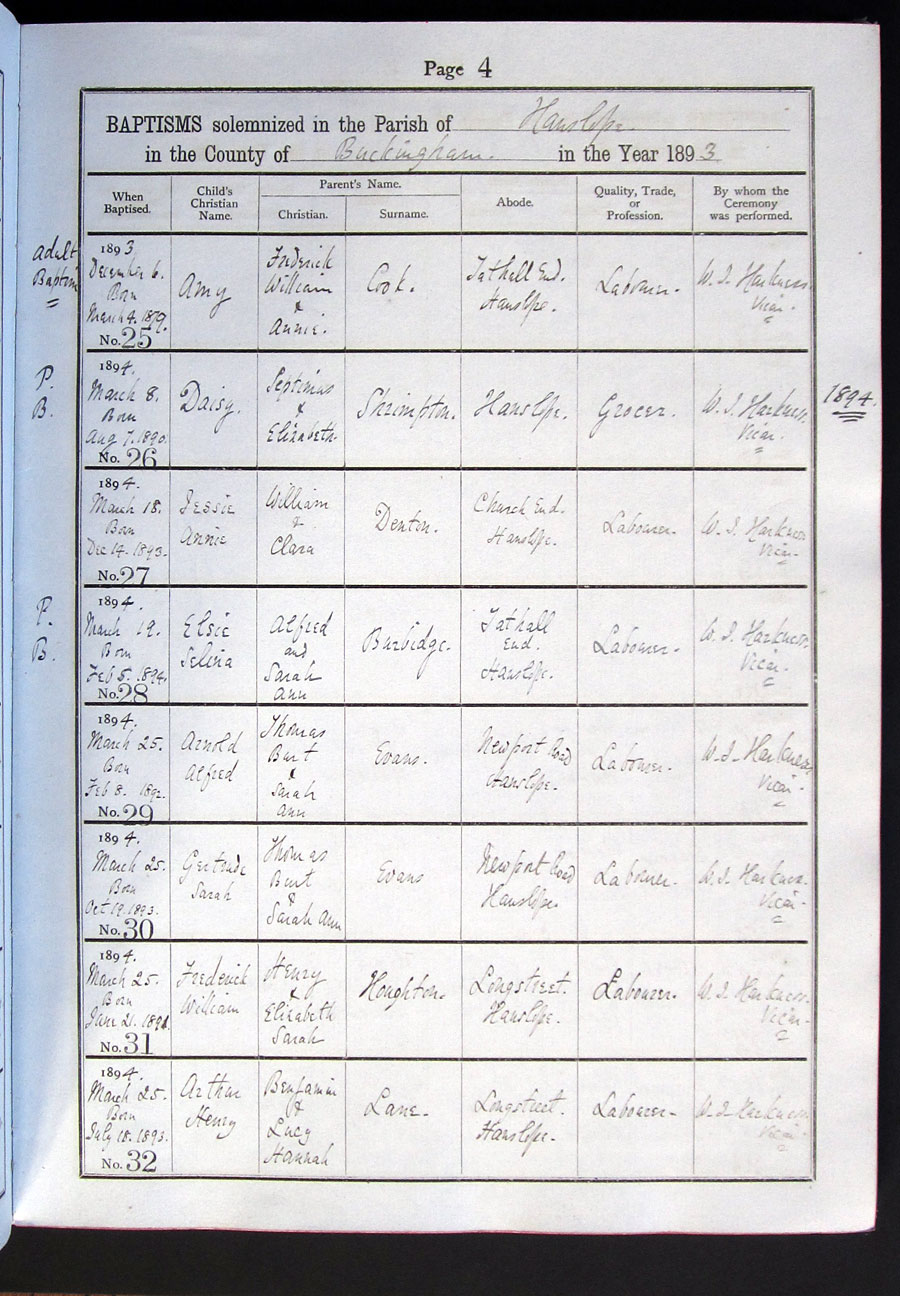 Page 4
BAPTISMS solemnized in the Parish of Hanslope.
in the County of Buckingham. in the Year 1893
When Baptised.
Child's Christian Name.
Parent's Name.
Christian.
Surname.
Abode.
Quality, Trade, or Profession.
By whom the Ceremony was performed.
Adult
Baptism
1893
December 6.
Born
March 4. 1879.
No. 25
Amy
Frederick
William
&
Annie.
Cook.
Tathall End.
Hanslope.
Labourer.
W. J. Harkness.
Vicar.
P.
B.
1894.
March 8.
Born
Aug 7. 1890.
No. 26
Daisy.
Septimus
&
Elizabeth.
Shrimpton.
Hanslope.
Grocer.
W. J. Harkness.
Vicar.
1894.
1894.
March 18.
Born
Dec 14. 1893.
No. 27
Jessie
Annie
William
&
Clara
Denton.
Church End.
Hanslope.
Labourer.
W. J. Harkness
Vicar.
P.
B.
1894.
March 19.
Born
Feb 5. 1894.
No. 28
Elsie
Selina
Alfred
and
Sarah
Ann
Burbidge.
Tathall
End.
Hanslope.
Labourer.
W. J. Harkness.
Vicar.
1894.
March 25.
Born
Feb 8. 1892.
No. 29
Arnold
Alfred
Thomas
Burt
&
Sarah
Ann
Evans.
Newport Road
Hanslope.
Labourer.
W. J. Harkness.
Vicar.
1894.
March 25.
Born
Oct 19. 1893.
No. 30
Gertrude
Sarah
Thomas
Burt
&
Sarah Ann
Evans
Newport Road
Hanslope.
Labourer.
W. J. Harkness.
Vicar.
1894.
March 25.
Born
No. 31
Frederick
William
Henry
&
Elizabeth
Sarah
Houghton.
Longstreet.
Hanslope.
Labourer.
W. J. Harkness.
Vicar.
1894.
March 25.
Born
July 18. 1893.
No. 32
Arthur
Henry
Benjamin
&
Lucy
Hannah
Lane.
Longstreet.
Hanslope.
Labourer.
W. J. Harkness
Vicar.